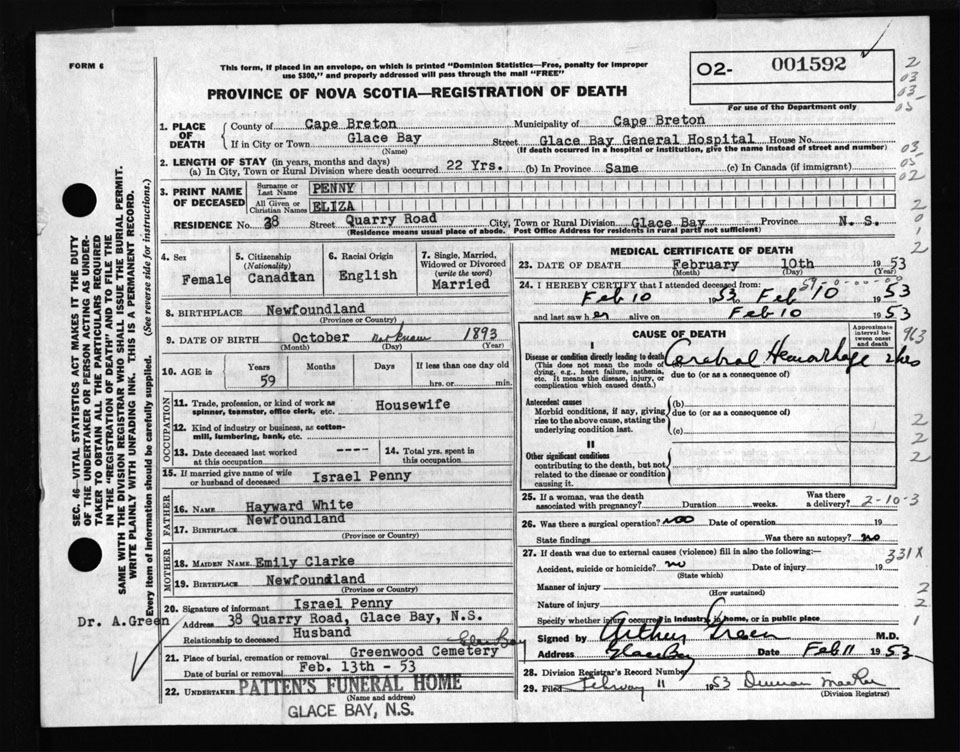 FORM 6
This form, if placed in an envelope, on which is printed "Dominion Statistics—Free, penalty for improper
use $300," and properly addressed will pass through the mail "FREE"
PROVINCE OF NOVA SCOTIA—REGISTRATION OF DEATH
02- 001592
For use of the Department only
2
03
03-
05
1. PLACE OF DEATH
County of Cape Breton Municipality of Cape Breton
If in City or Town Glace Bay Street Glace Bay General Hospital House No.
(Name) (If death occurred in a hospital or institution, give the name instead of street and number)
03-
05
02
2. LENGTH OF STAY (in years, months and days)
(a) In City, Town or Rural Division where death occurred 22 Yrs. (b) In Province Same (c) In Canada (if immigrant)
3. PRINT NAME OF DECEASED
Surname or Last Name PENNY
All Given or Christian Names ELIZA
RESIDENCE No. 38 Street Quarry Road City, Town or Rural Division Glace Bay Province N. S.
(Residence means usual place of abode. Post Office Address for residents in rural parts not sufficient)
2
0
1
2
4. Sex Female
5. Citizenship (Nationality) Canadian
6. Racial Origin English
7. Single, Married, Widowed or Divorced (write the word) Married
8. BIRTHPLACE Newfoundland
(Province or Country)
9. DATE OF BIRTH October not known 1893
(Month) (Day) (Year)
10. AGE in Years Months Days If less than one day old
59 hrs. or min.
OCCUPATION
11. Trade, profession, or kind of work as spinner, teamster, office clerk, etc. Housewife
12. Kind of industry or business, as cotton-mill, lumbering, bank, etc.
13. Date deceased last worked at this occupation ----
14. Total yrs. spent in this occupation
15. If married give name of wife or husband of deceased Israel Penny
FATHER
16. NAME Hayward White
17. BIRTHPLACE Newfoundland
(Province or Country)
MOTHER
18. MAIDEN NAME Emily Clarke
19. BIRTHPLACE Newfoundland
(Province or Country)
20. Signature of informant Israel Penny
Address 38 Quarry Road, Glace Bay, N.S.
Relationship to deceased Husband
Glace Bay
21. Place of burial, cremation or removal Greenwood Cemetery
Date of burial or removal Feb. 13th - 53
22. UNDERTAKER PATTEN'S FUNERAL HOME
(Name and address)
GLACE BAY, N.S.
MEDICAL CERTIFICATE OF DEATH
23. DATE OF DEATH February 10th 1953
(Month) (Day) (Year)
24. I HEREBY CERTIFY that I attended deceased from:
59-0-00-00-0
Feb 10 1953 to Feb 10 1953
and last saw her alive on Feb 10 1953
CAUSE OF DEATH
Approximate interval between onset and death
963
I
Disease or condition directly leading to death
(This does not mean the mode of dying, e.g., heart failure, asthenia, etc. It means the disease, injury, or complication which caused death.)
Cerebral Hemorrhage 2hrs
due to (or as a consequence of)
Antecedent causes
Morbid conditions, if any, giving rise to the above cause, stating the underlying condition last.
(b)
due to (or as a consequence of)
(c)
2
2
2
II
Other significant conditions
contributing to the death, but not related to the disease or condition causing it.
25. If a woman, was the death associated with pregnancy? Duration weeks. Was there a delivery?
2-10-3
26. Was there a surgical operation? Noo Date of operation 19
State findings Was there an autopsy? no
27. If death was due to external causes (violence) fill in also the following:
331X
Accident, suicide or homicide? no Date of injury 19
(State which)
Manner of injury
(How sustained)
Nature of injury
2
2
1
Specify whether injury occurred in industry, in home, or in public place
Signed by Arthur Green M.D.
Address Glace Bay Date Feb 11 1953
28. Division Registrar's Record Number
29. Filed February 11 1953 Duncan MacRae
(Division Registrar)
SEC. 46—VITAL STATISTICS ACT MAKES IT THE DUTY
OF THE UNDERTAKER OR PERSON ACTING AS UNDER-
TAKER TO OBTAIN ALL THE PARTICULARS REQUIRED
IN THE "REGISTRATION OF DEATH" AND TO FILE THE
SAME WITH THE DIVISION REGISTRAR WHO SHALL ISSUE THE BURIAL PERMIT.
WRITE PLAINLY WITH UNFADING INK. THIS IS A PERMANENT RECORD.
Every item of information should be carefully supplied. (See reverse side for instructions.)
Dr. A.Green